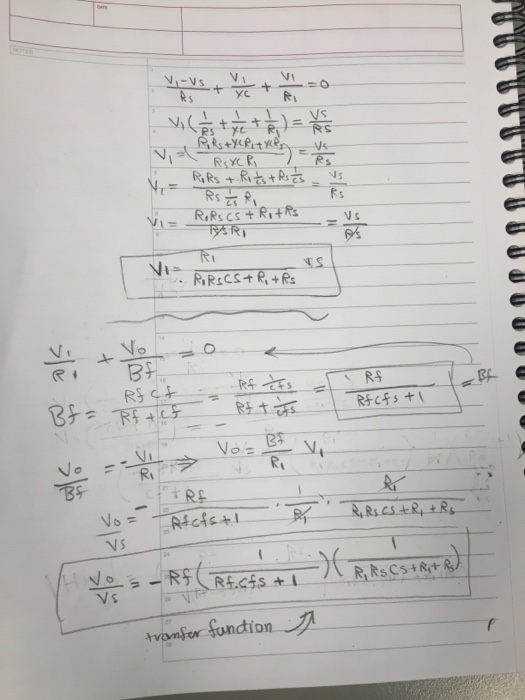 DATE
NOTES
V1-VS/RS + V1/XC + V1/R1 = 0
V1(1/RS + 1/XC + 1/R1) = VS/RS
V1 = (R1RS+XCR1+XCRS/RSXCR1) = VS/RS
V1 = R1RS + R1 1/CS + RS 1/CS / RS 1/CS R1 = VS/RS
V1 = R1RSCS + R1 + RS / RSR1 = VS/RS
V1 = R1 / R1RSCS + R1 + RS VS
V1/R1 + V0/Bf = 0
Bf = RfCf / Rf + Cf = Rf 1/Cfs / Rf + 1/Cfs = Rf / Rfcfs + 1 = Bf
V0/Bf = -V1/R1 ⇒ V0 = Bf/R1 V1
V0/VS = - Rf / Rfcfs+1 · 1/R1 · R1 / R1RSCS + R1 + RS
V0/VS = -Rf (1 / Rf.Cfs + 1)(1 / R1RSCS+R1+RS)
tranfer function